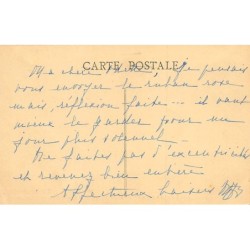 CARTE POSTALE
Ma chère je pensais
vous envoyer le ruban rose
mais, réflexion faite... il vaut
mieux le garder pour un
jour plus solennel...
Ne faites pas d'excentricités
et revenez bien entière
Affectueux baisers